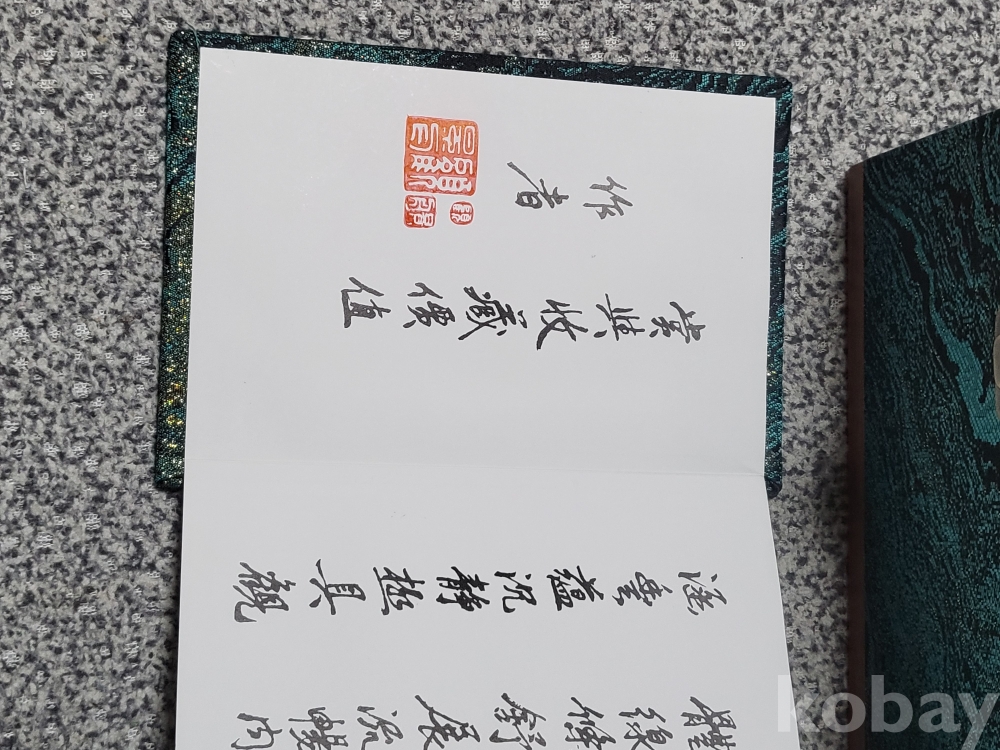 體線條舒展流暢内
涵豐蘊沉靜極具觀
賞與收藏價值
作者
kobay